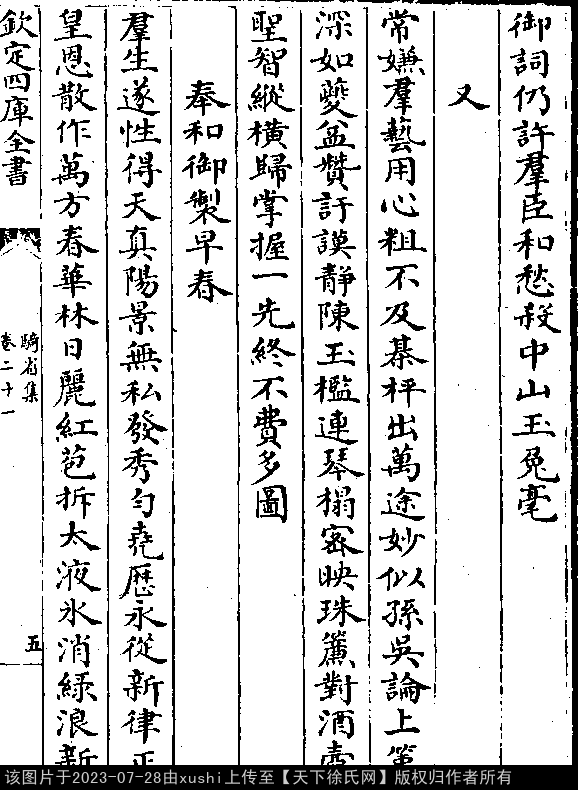 御詞仍許羣臣和愁殺中山玉兔毫
又
常嫌羣藝用心粗不及棊枰出萬途妙似孫吳論上
深如夔益贊訏謨静陳玉檻連琴榻宻映珠簾對酒壺
聖智縱横歸掌握一先終不費多圖
奉和御製早春
羣生遂性得天真陽景無私發秀勻堯歴永從新律正
皇恩散作萬方春華林日麗紅苞拆太液氷消綠浪新
欽定四庫全書
騎省集
卷二十一
五
该图片于2023-07-28由xushi上传至【天下徐氏网】版权归作者所有